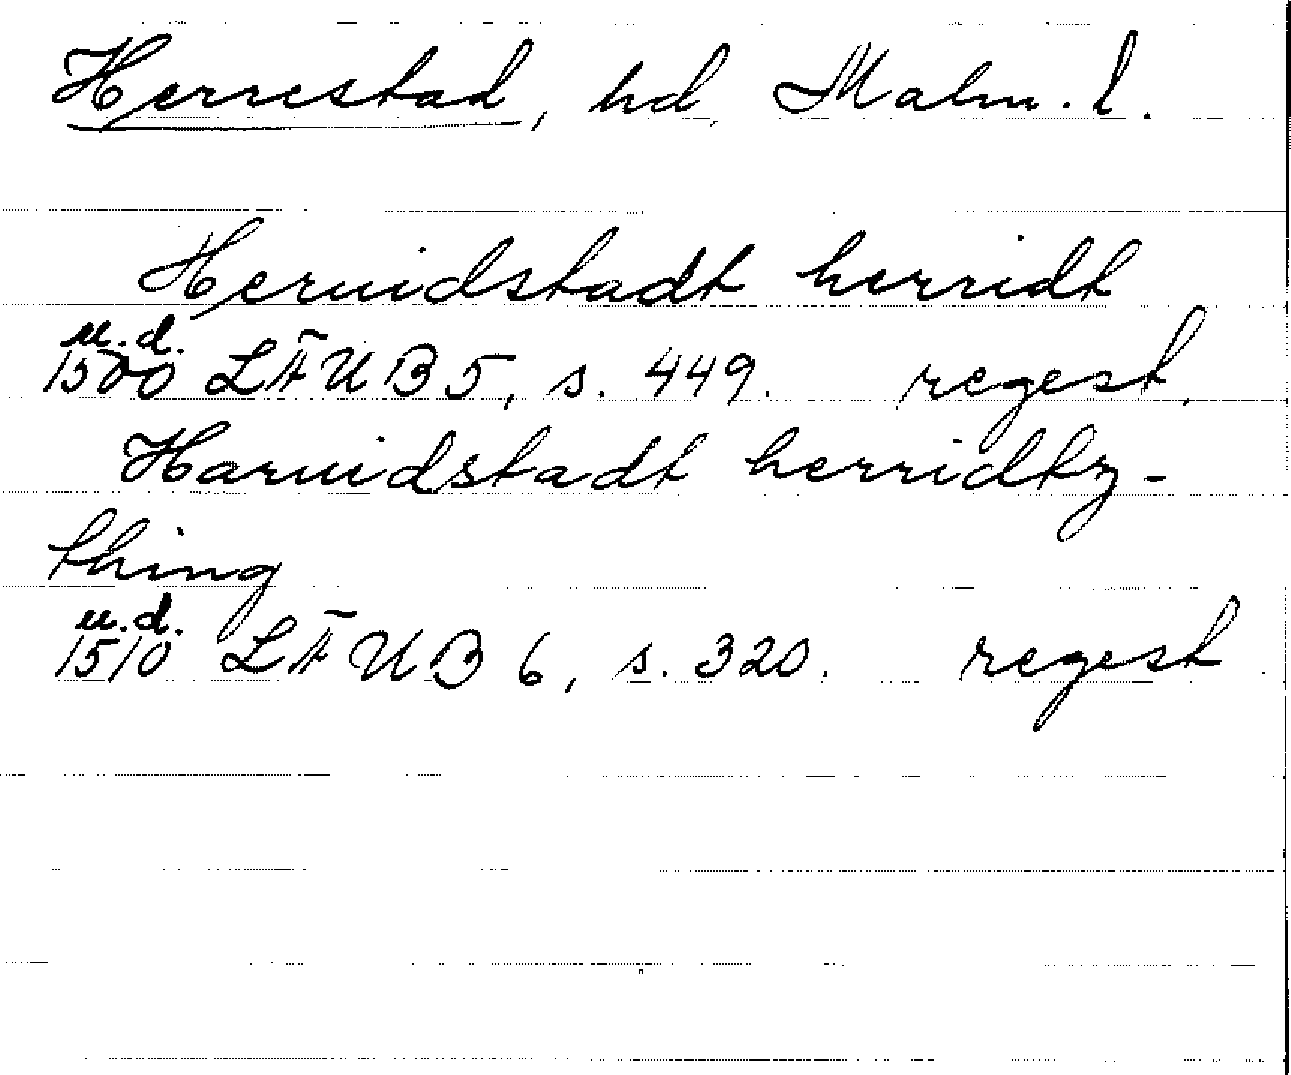 Herrestad, hd, Malm. l.
Heruidstadt herridt
u.d.
1500 LÄUB 5, s. 449. regest,
Haruidstadt herridtz-
thing
u.d.
1510 LÄUB 6, s. 320. regest